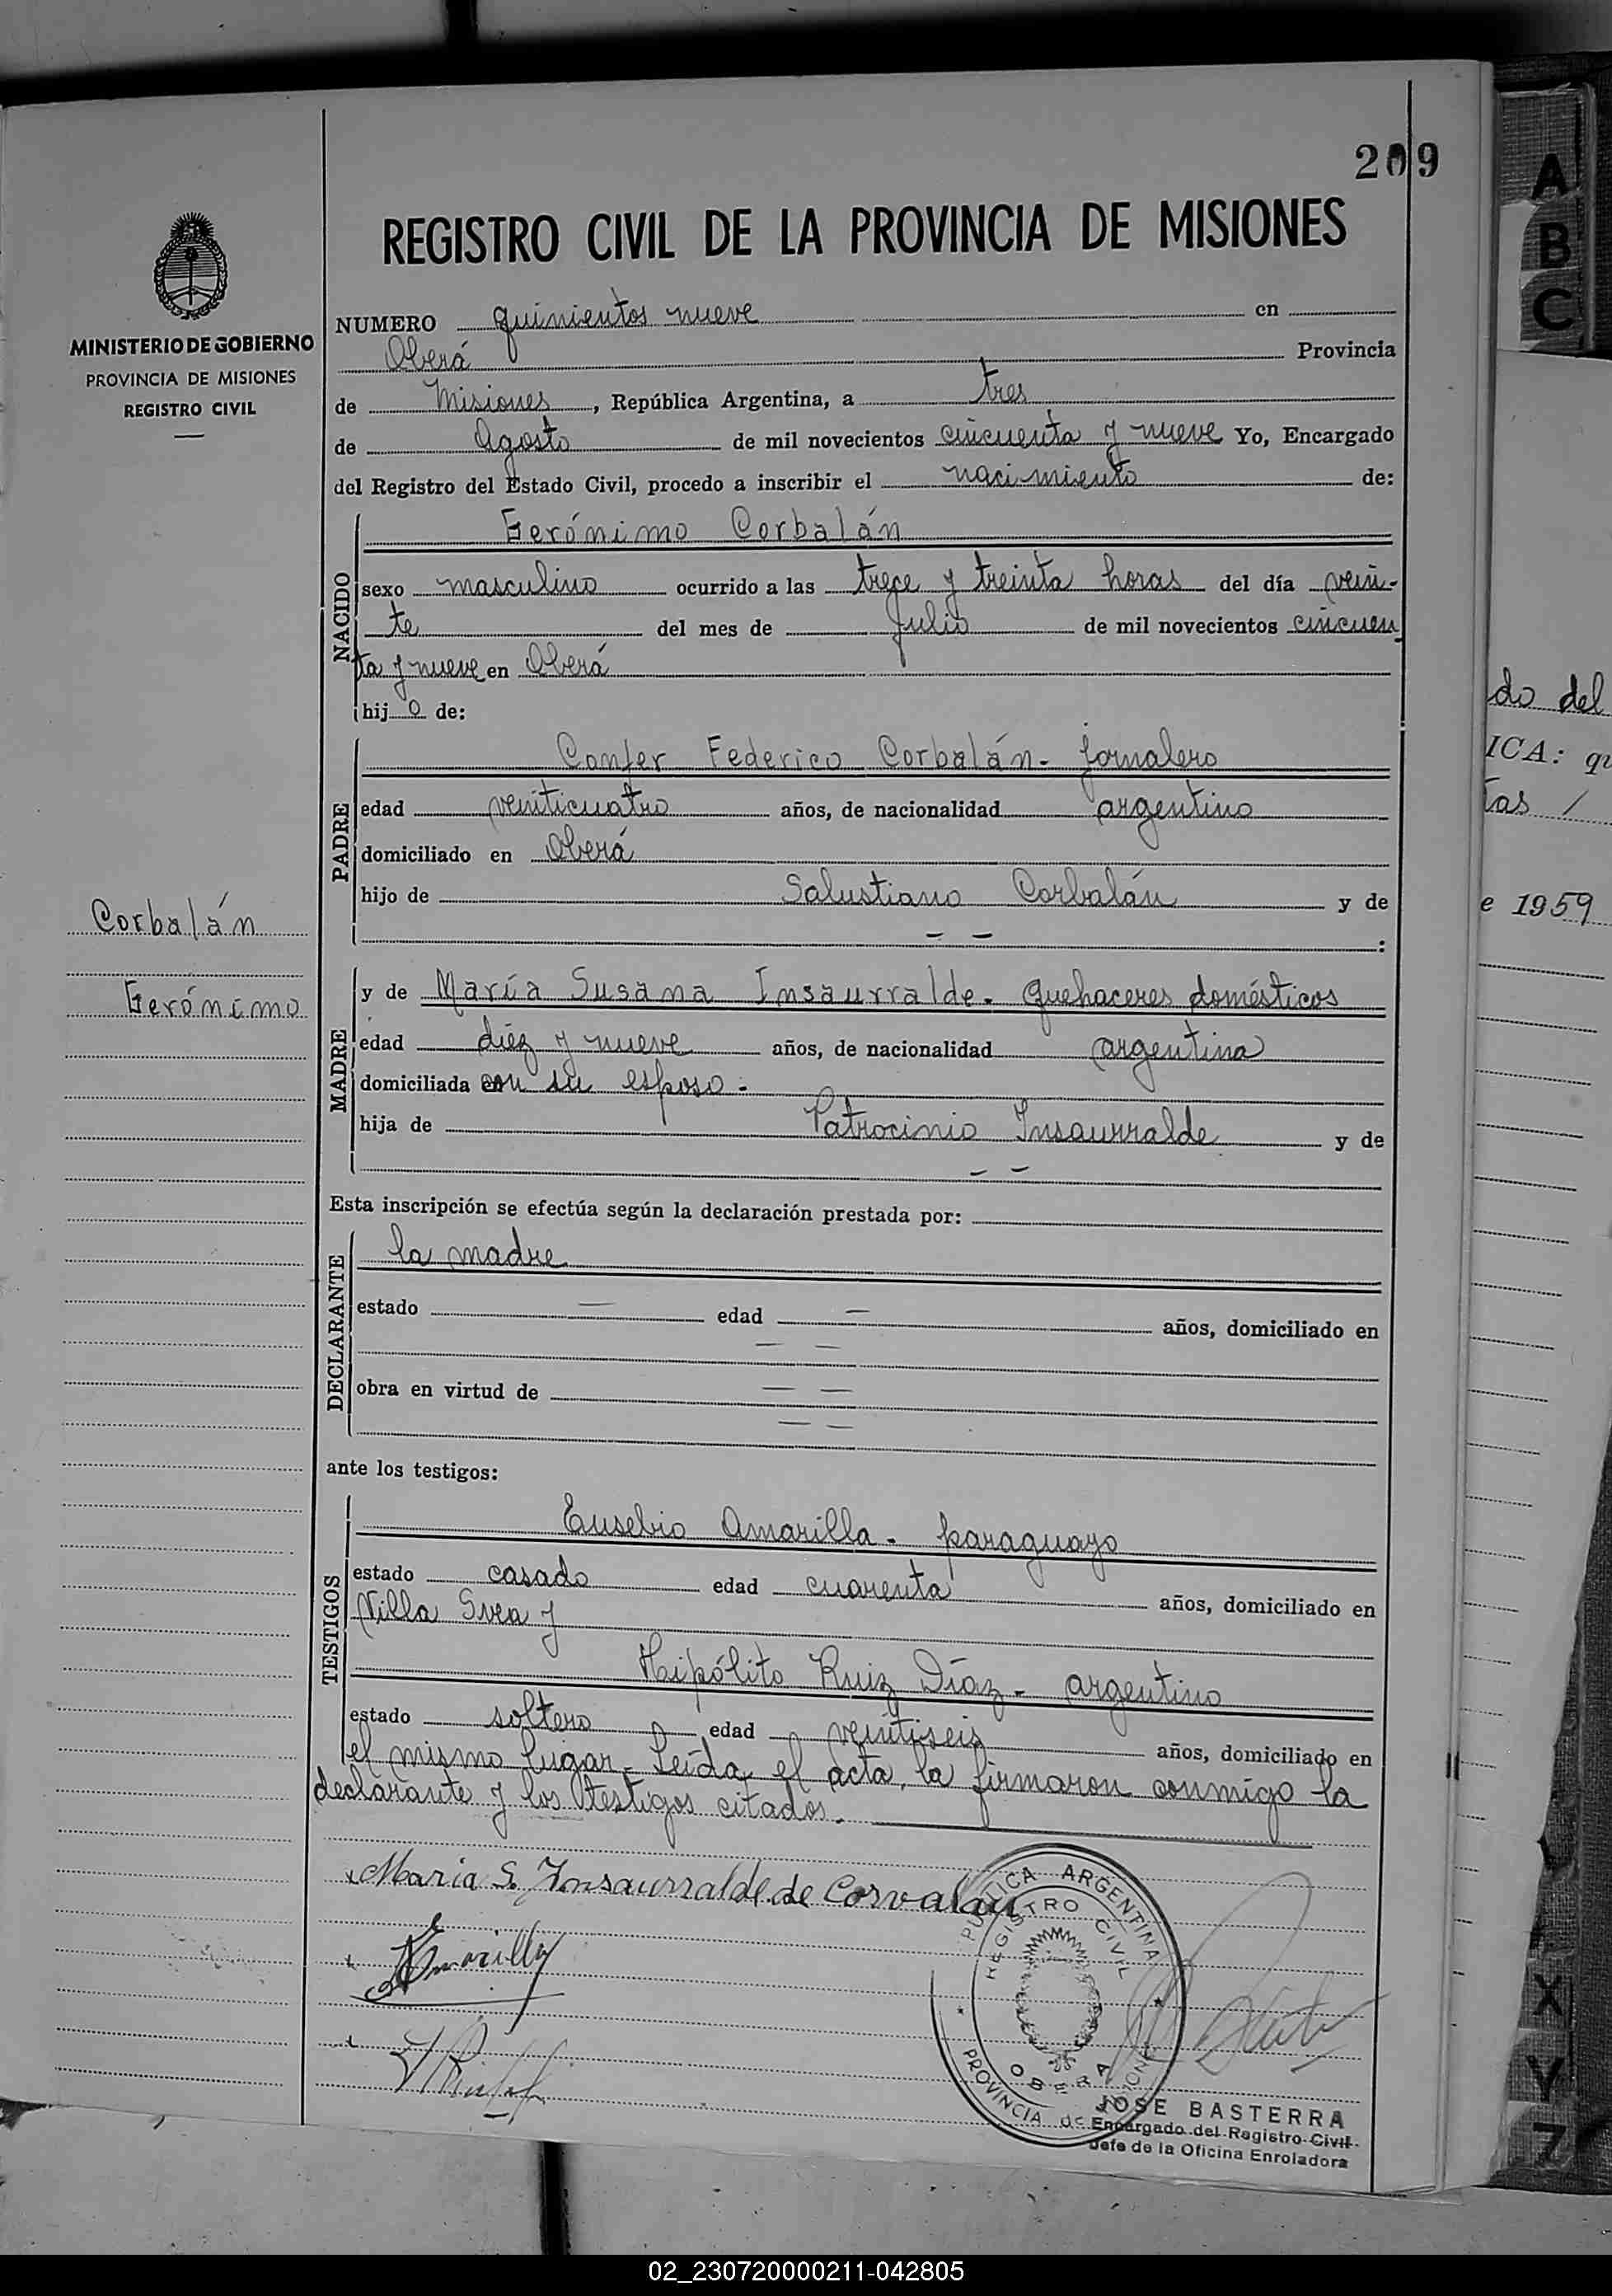 209
REGISTRO CIVIL DE LA PROVINCIA DE MISIONES
MINISTERIO DE GOBIERNO
PROVINCIA DE MISIONES
REGISTRO CIVIL
NUMERO quinientos nueve en
Oberá Provincia
de Misiones, República Argentina, a tres
de Agosto de mil novecientos cincuenta y nueve Yo, Encargado
del Registro del Estado Civil, procedo a inscribir el nacimiento de:
NACIDO
Gerónimo Corbalán
sexo masculino ocurrido a las trece y treinta horas del día vein-
te del mes de Julio de mil novecientos cincuen
ta y nueve en Oberá
hijo de:
PADRE
Federico Corbalán - Jornalero
edad veinticuatro años, de nacionalidad argentino
domiciliado en Oberá
hijo de Salustiano Corbalán y de
- - :
Corbalán
Gerónimo
MADRE
y de María Susana Insaurralde - Quehaceres domésticos
edad diéz y nueve años, de nacionalidad argentina
domiciliada con su esposo -
hija de Patrocinio Insaurralde y de
- -
Esta inscripción se efectúa según la declaración prestada por:
DECLARANTE
la madre
estado — edad — años, domiciliado en
— —
obra en virtud de — —
— —
ante los testigos:
TESTIGOS
Eusebio Amarilla - paraguayo
estado casado edad cuarenta años, domiciliado en
Villa Svea y
Hipólito Ruiz Díaz - argentino
estado soltero edad veintiseis años, domiciliado en
el mismo lugar - Leída el acta, la firmaron conmigo la
declarante y los testigos citados.
Maria S. Insaurralde de Corvalan
EAmarilla
REPUBLICA ARGENTINA
REGISTRO CIVIL
OBERA
PROVINCIA de MISIONES
JOSE BASTERRA
Encargado del Registro Civil
Jefe de la Oficina Enroladora
do del
ICA: qu
tas /
e 1959
A
B
C
X
Y
Z
02_230720000211-042805